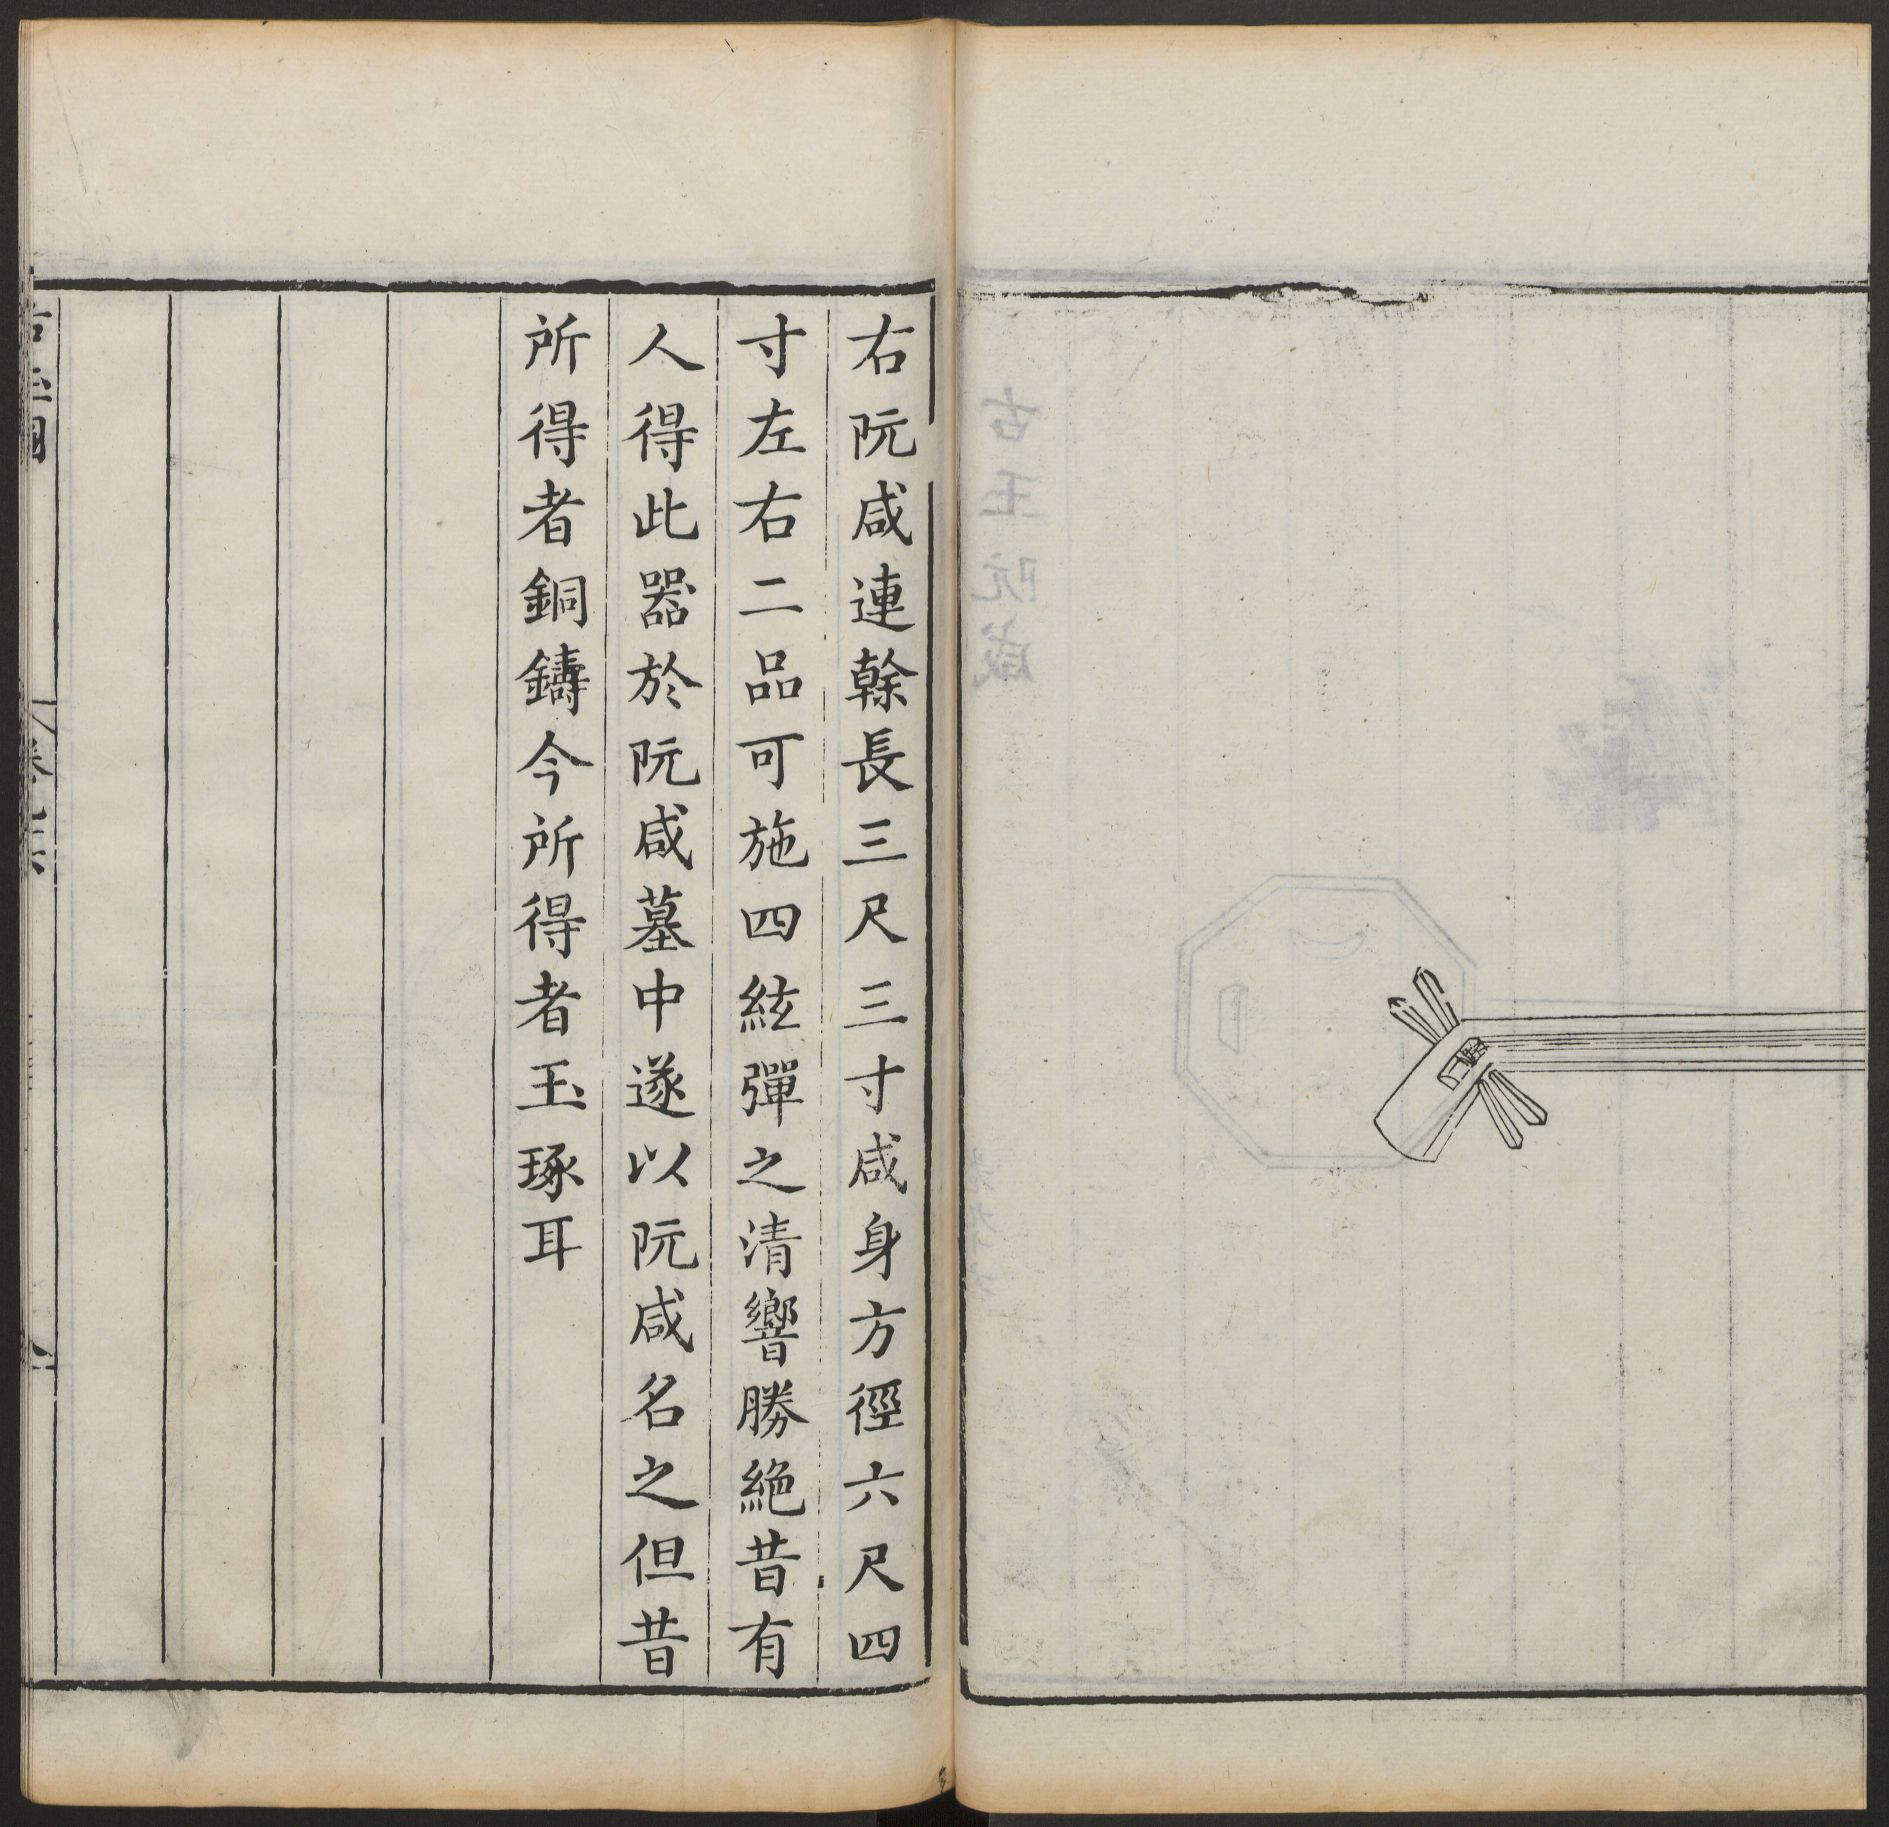 右阮咸連幹長三尺三寸咸身方徑六尺四
寸左右二品可施四絃彈之清響勝絶昔有
人得此器於阮咸墓中遂以阮咸名之但昔
所得者銅鑄今所得者玉琢耳